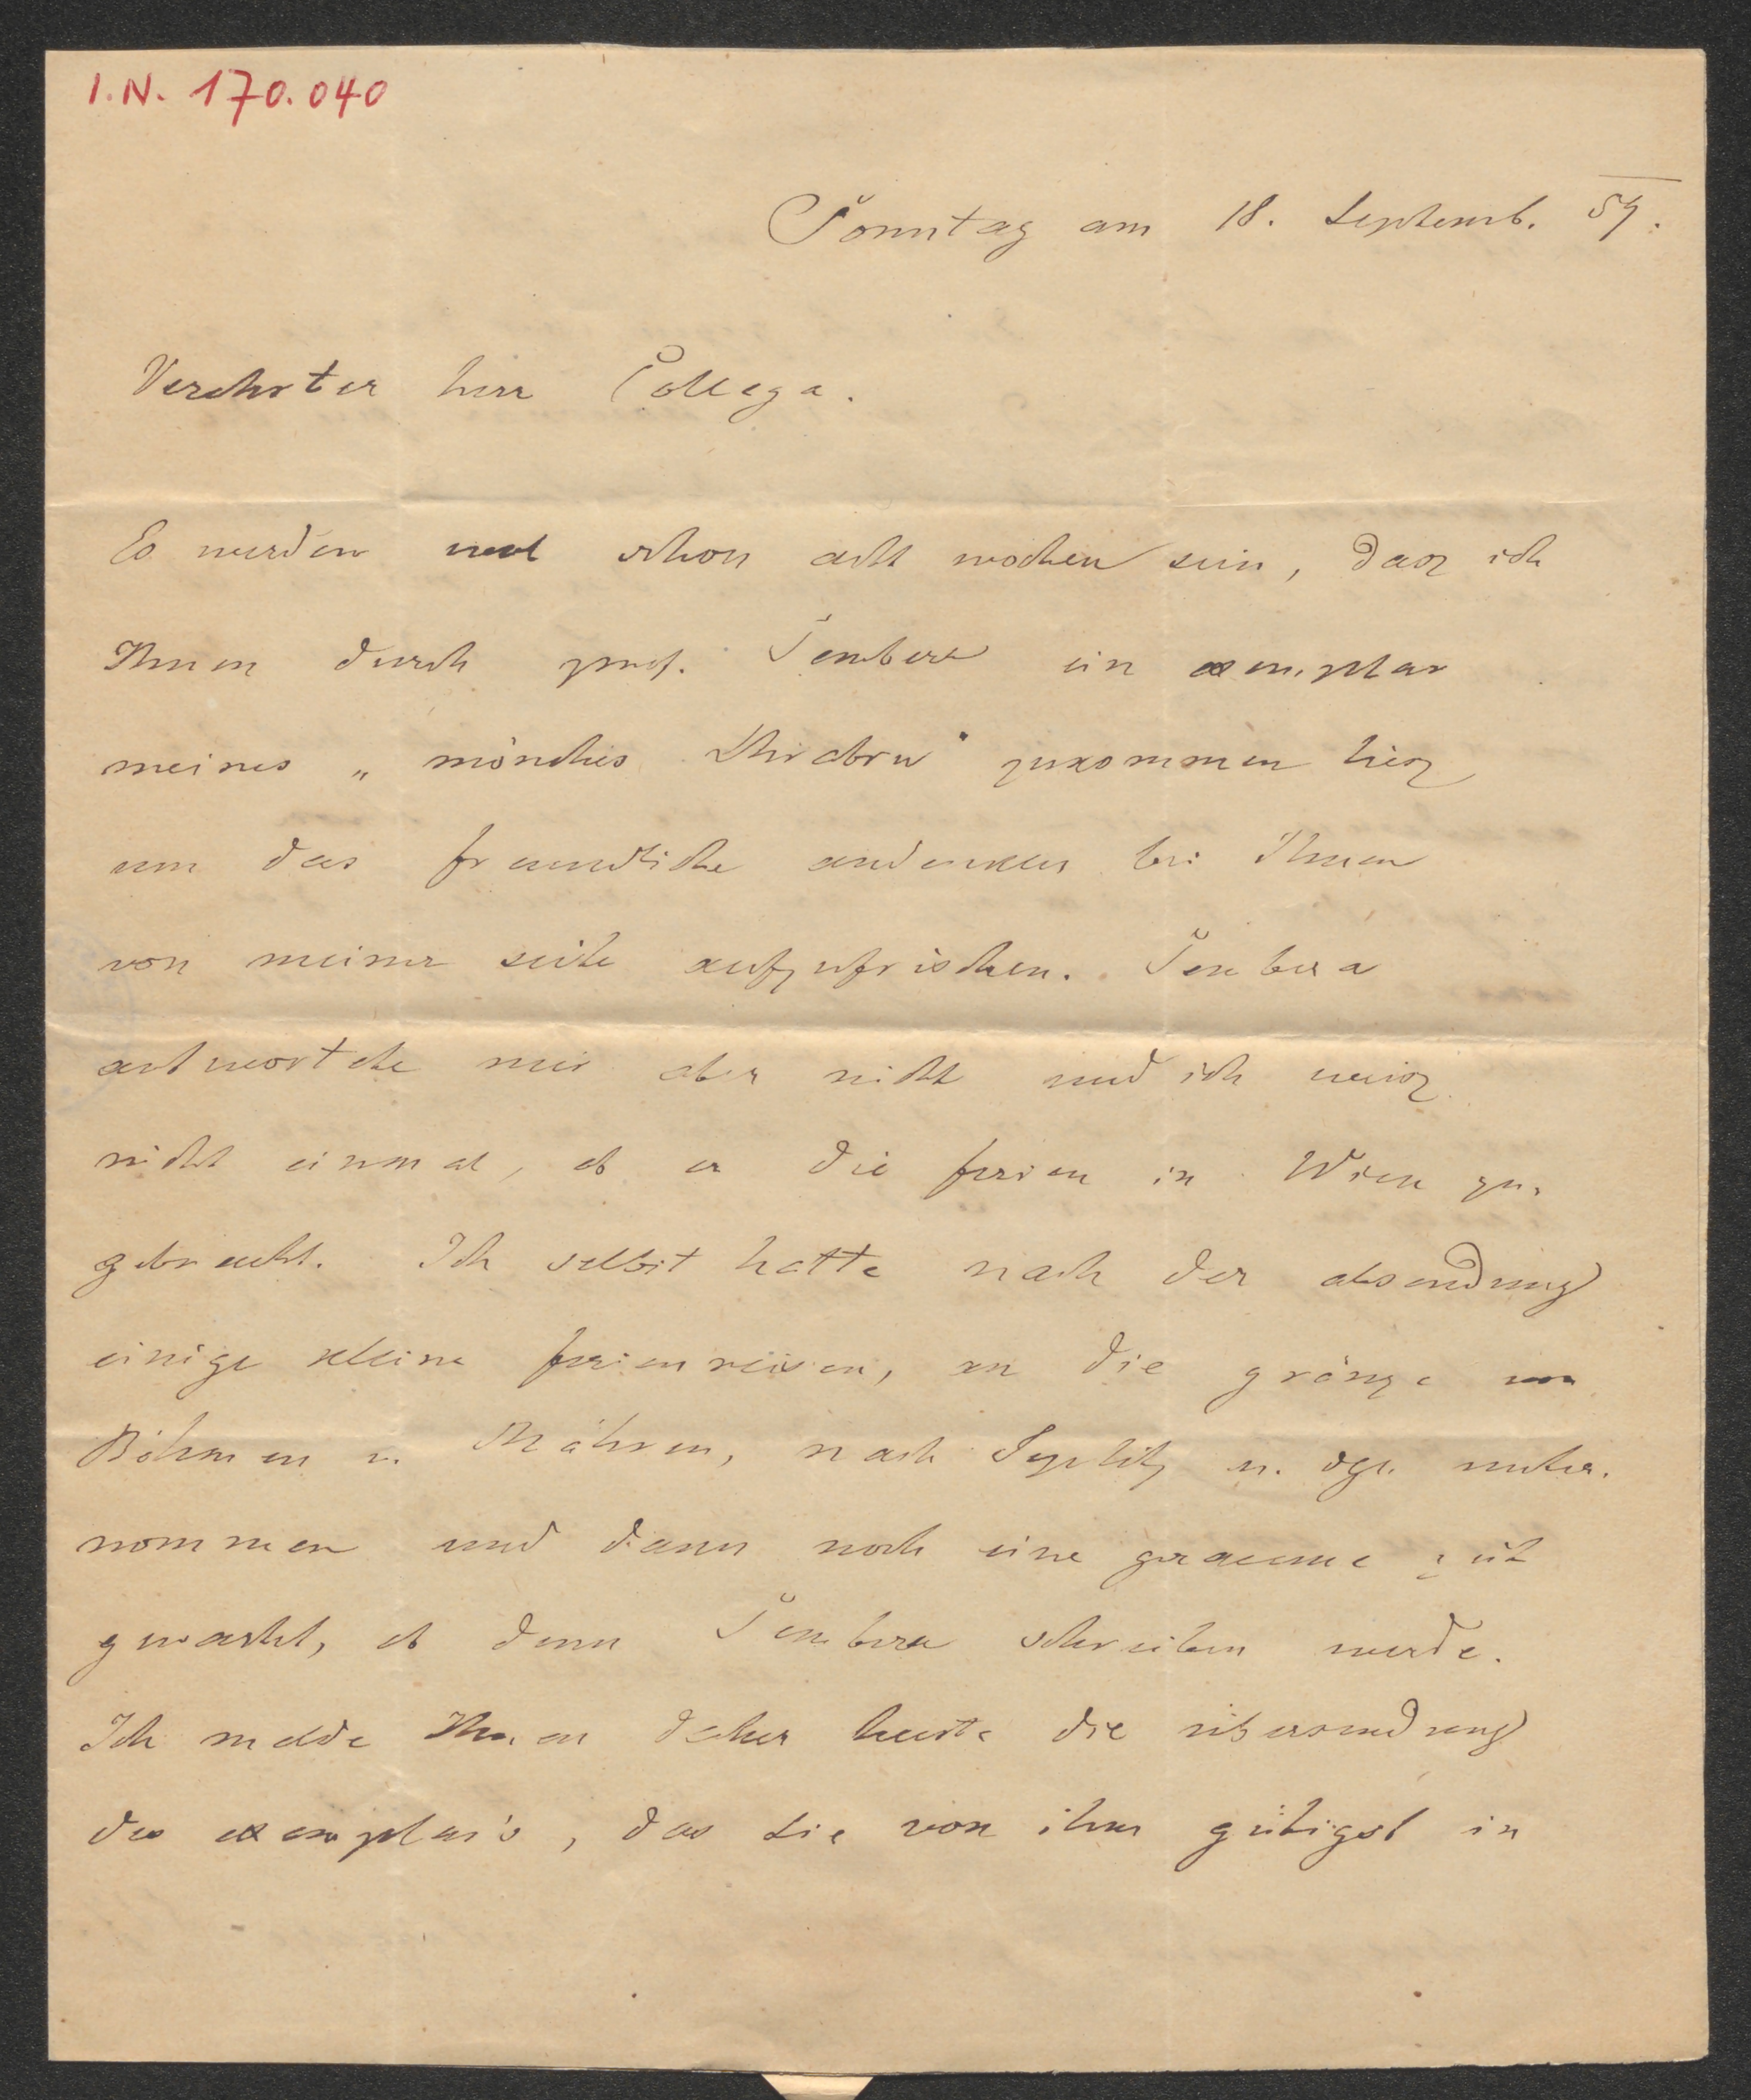 I.N. 170.040
Sonntag am 18. Septemb. 59.
Verehrter herr Collega.
Es werden wol schon acht wochen sein, dasz ich
Ihnen durch prof. Šembera ein exemplar
meines „mönches Hrabru“ zukommen liesz
um das freundliche andenken bei Ihnen
von meiner seite aufzufrischen. Šembera
antwortete mir aber nicht und ich weisz
nicht einmal, ob er die ferien in Wien zu-
gebracht. Ich selbst hatte nach der absendung
einige kleine ferienreisen, an die gränze von
Böhmen u. Mähren, nach Teplitz u. dgl. unter-
nommen und dann noch eine geraume zeit
gewartet, ob denn Šembera schreiben werde.
Ich melde Ihnen daher heute die übersendung
des exemplar's, das Sie von ihm gütigst in